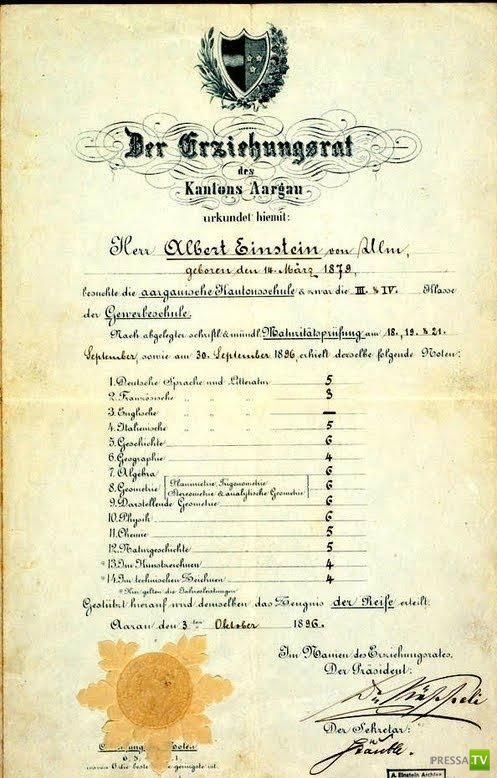 Der Erziehungsrat
des
Kantons Aargau
urkundet hiemit:
Herr Albert Einstein von Ulm,
geboren den 14. März 1879,
besuchte die aargauische Kantonsschule & zwar die III. & IV. Klasse
der Gewerbeschule.
Nach abgelegter schriftl. & mündl. Maturitätsprüfung am 18., 19. & 21.
September, sowie am 30. September 1896, erhielt derselbe folgende Noten:
1. Deutsche Sprache und Litteratur 5
2. Französische " " " 3
3. Englische " " " —
4. Italienische " " " 5
5. Geschichte 6
6. Geographie 4
7. Algebra 6
8. Geometrie [Planimetrie, Trigonometrie 6
Stereometrie & analytische Geometrie]
9. Darstellende Geometrie 6
10. Physik 6
11. Chemie 5
12. Naturgeschichte 5
*13. Im Kunstzeichnen 4
*14. Im technischen Zeichnen 4
* Hier gelten die Jahresleistungen.
Gestützt hierauf wird demselben das Zeugnis der Reife erteilt.
Aarau den 3ten Oktober 1896.
Im Namen des Erziehungsrates,
Der Präsident:
Der Sekretär:
Noten
6. 5.
die beste geringste ist.
A. Einstein Archive
PRESSA TV